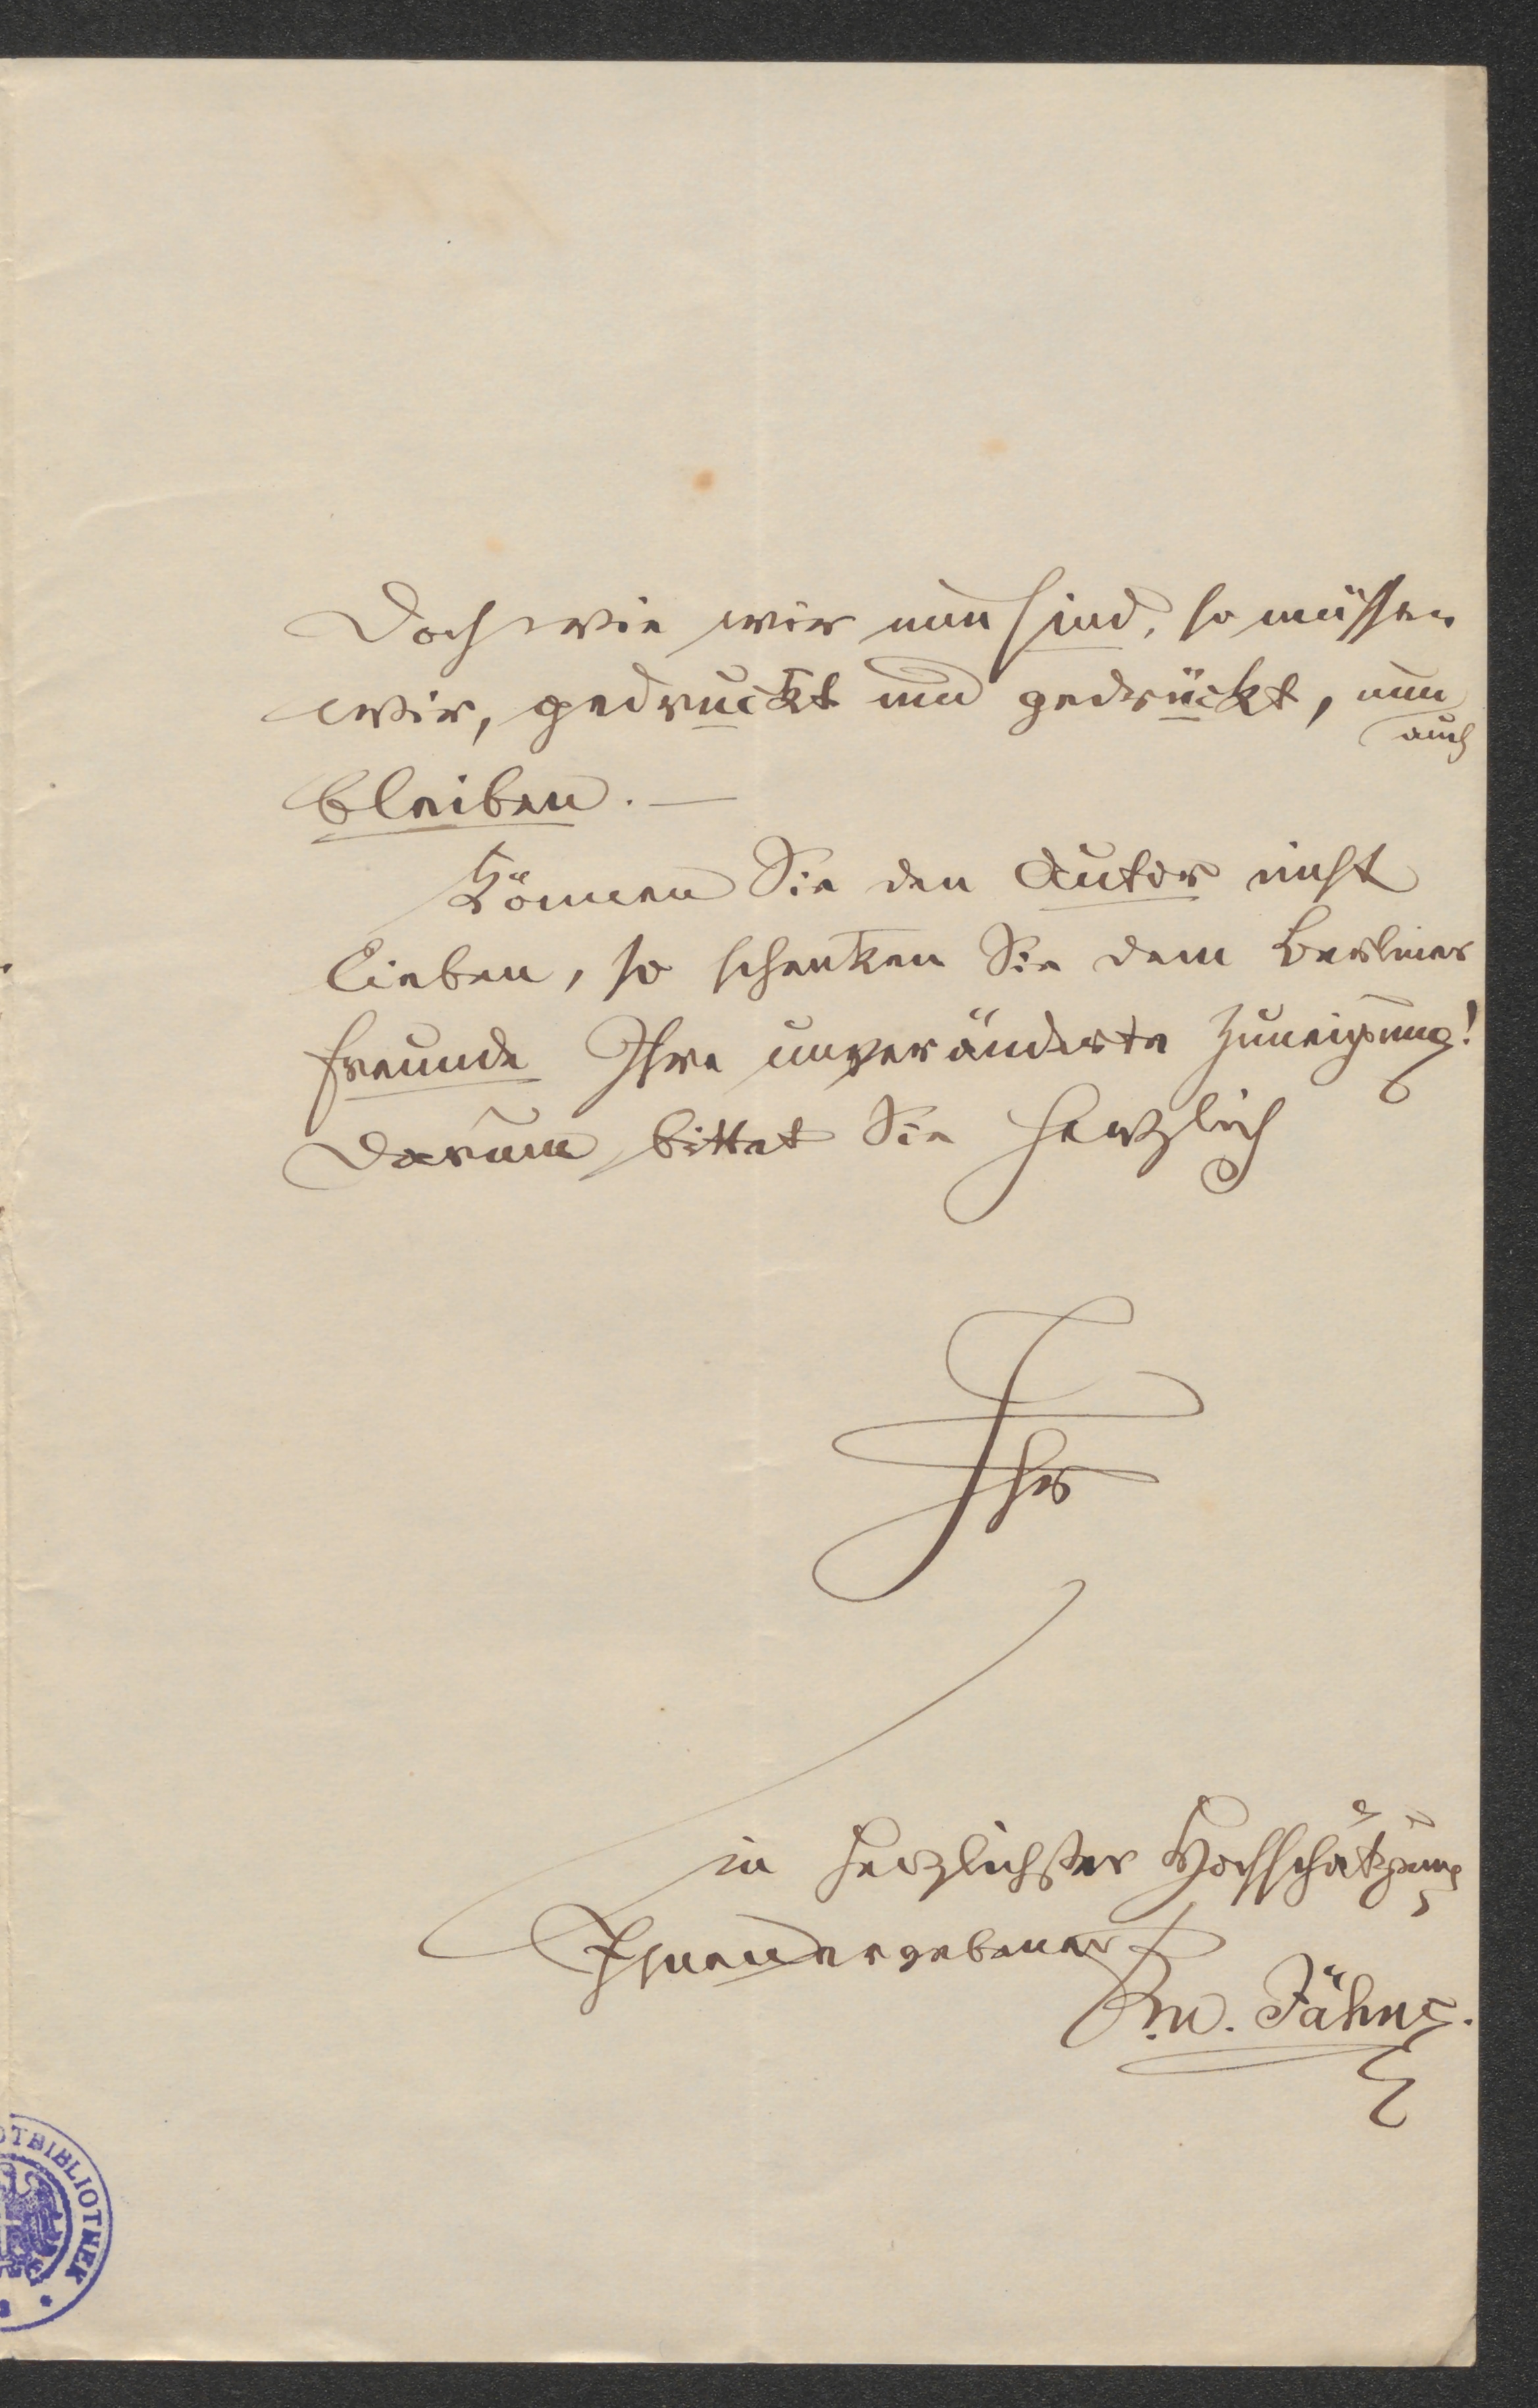 Doch wie wir nun sind, so müssen
wir, gedruckt und gedrückt, nun
auch
bleiben. —
Können Sie den Autor nicht
lieben, so schenken Sie dem Berliner
Freunde Ihre unveränderte Zuneigung!
Darum bittet Sie herzlich
Ihr
in herzlichster Hochschätzung
Ihnen ergebener
F. W. Jähns.
OTBIBLIOTHEK